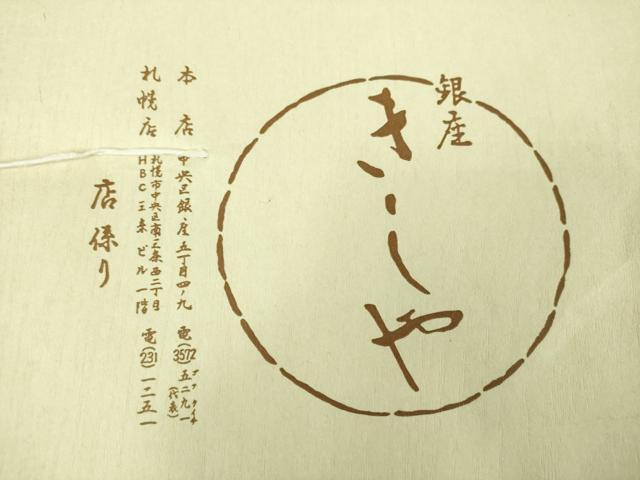 銀座
きしや
本店 中央区銀座五丁目四ノ九 電(3572)五二九一(代表)
札幌店 札幌市中央区南三条西二丁目
HBC三条ビル一階 電(231)一二五一
店係り